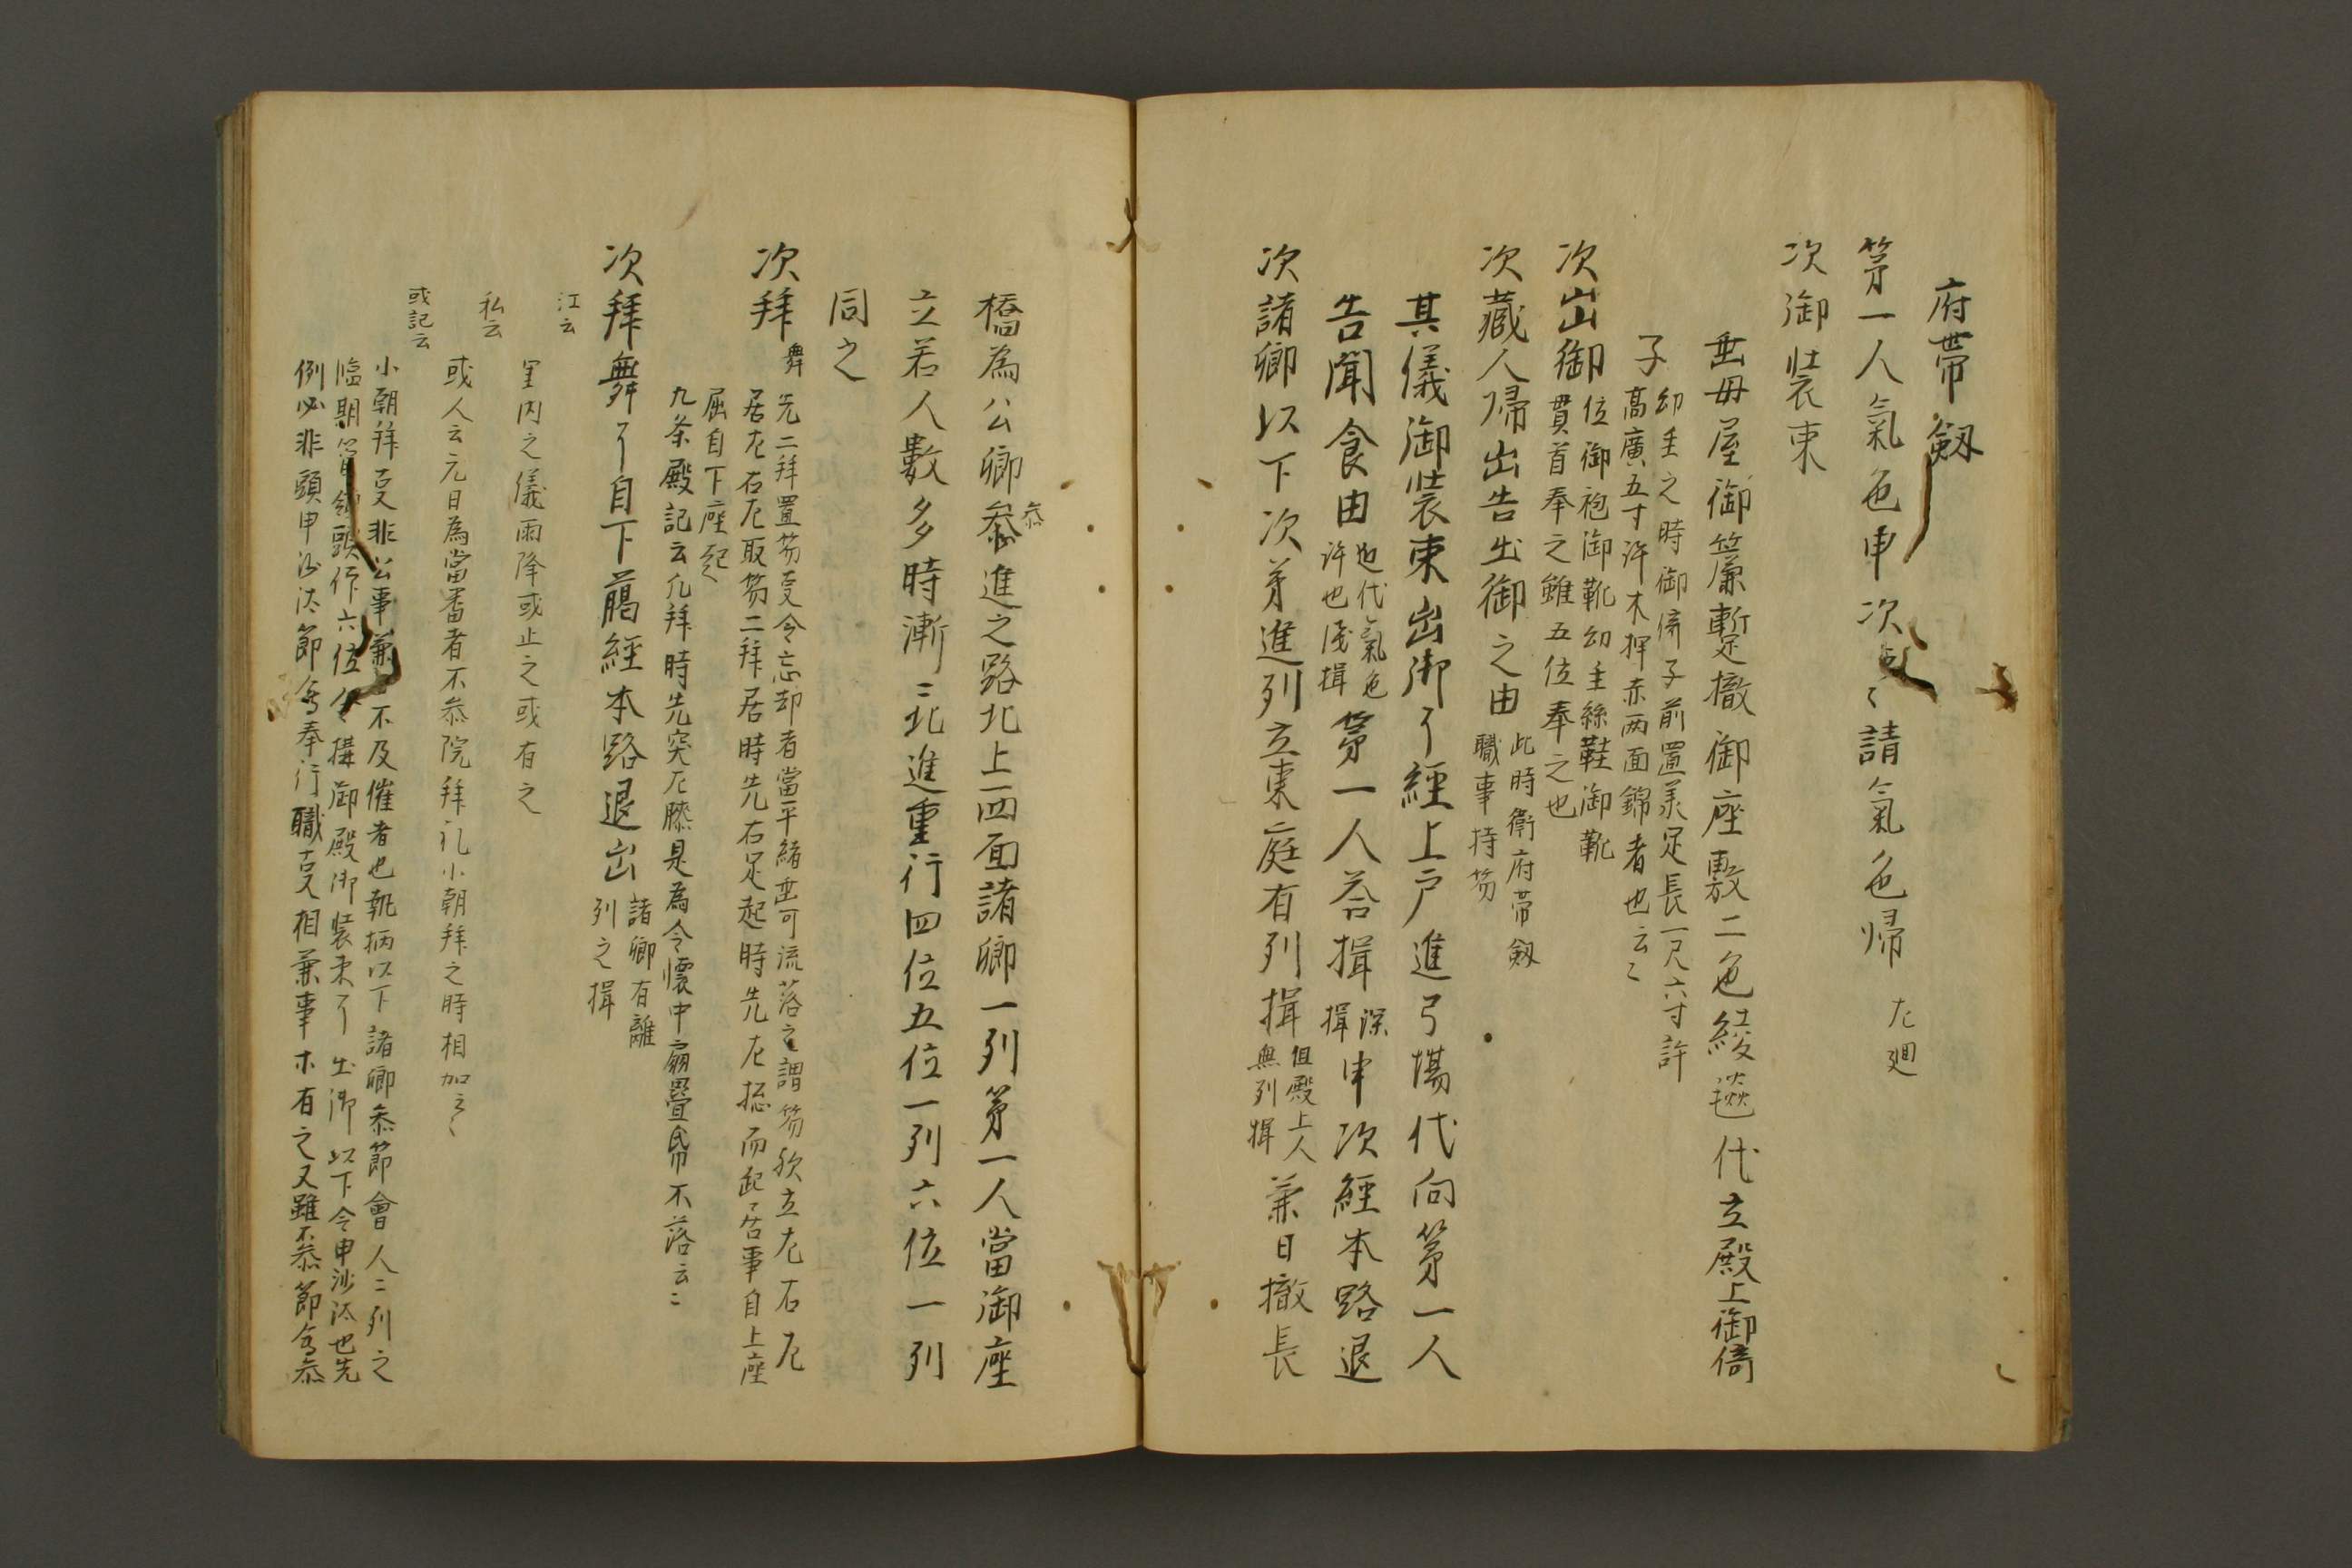 府帶劔
第一人氣色申次〻〻請氣色帰 左廻
次御装束
垂毋屋御簾暫撤御座敷二色綾毯代立殿上御倚
子 幼主之時御倚子前置羕足長一尺六寸許
高廣五寸許木押赤両面錦者也云〻
次出御 位御袍御靴幼主絲鞋御靴
貫首奉之雖五位奉之也
次蔵人帰出告出御之由 此時衛府帯劔
職事持笏
其儀御装束出御了經上戸進弓場代向第一人
告聞食由 也代氣色
許也淺揖 第一人荅揖 深
揖 申次經本路退
次諸卿以下次第進列立東庭有列揖 但殿上人
無列揖 兼日撤長
橋為公卿叅進之路北上四面諸卿一列第一人當御座
叅
立若人數多時漸〻北進重行四位五位一列六位一列
同之
次拜舞 先二拜置笏㕝令忘却者當平緒垂可流落之謂笏欤立左右左
居左右左取笏二拜居時先右足起時先左揔而起居事自上座
屈自下座起
九条殿記云凢拜時先突左膝是為令懐中扇疊帋不落云〻
次拜舞了自下﨟經本路退出 諸卿有離
列之揖
江云
里内之儀雨降或止之或有之
私云
或人云元日為當番者不叅院拜礼小朝拜之時相加云〻
或記云
小朝拜㕝非公事兼不及催者也執柄以下諸卿叅節會人〻列之
臨期頭仰六位令構御殿御装束了出御以下令申沙汰也先
例必非頭申沙汰節會奉行職㕝相兼事木有之又雖不叅節會叅